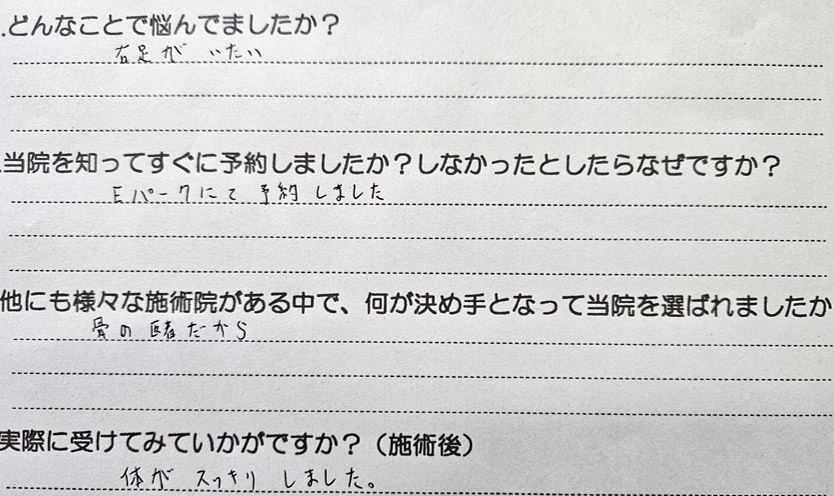 .どんなことで悩んでましたか？
右足がいたい
.当院を知ってすぐに予約しましたか？しなかったとしたらなぜですか？
Eパークにて予約しました
他にも様々な施術院がある中で、何が決め手となって当院を選ばれましたか
骨の際だから
実際に受けてみていかがですか？（施術後）
体がスッキリしました。